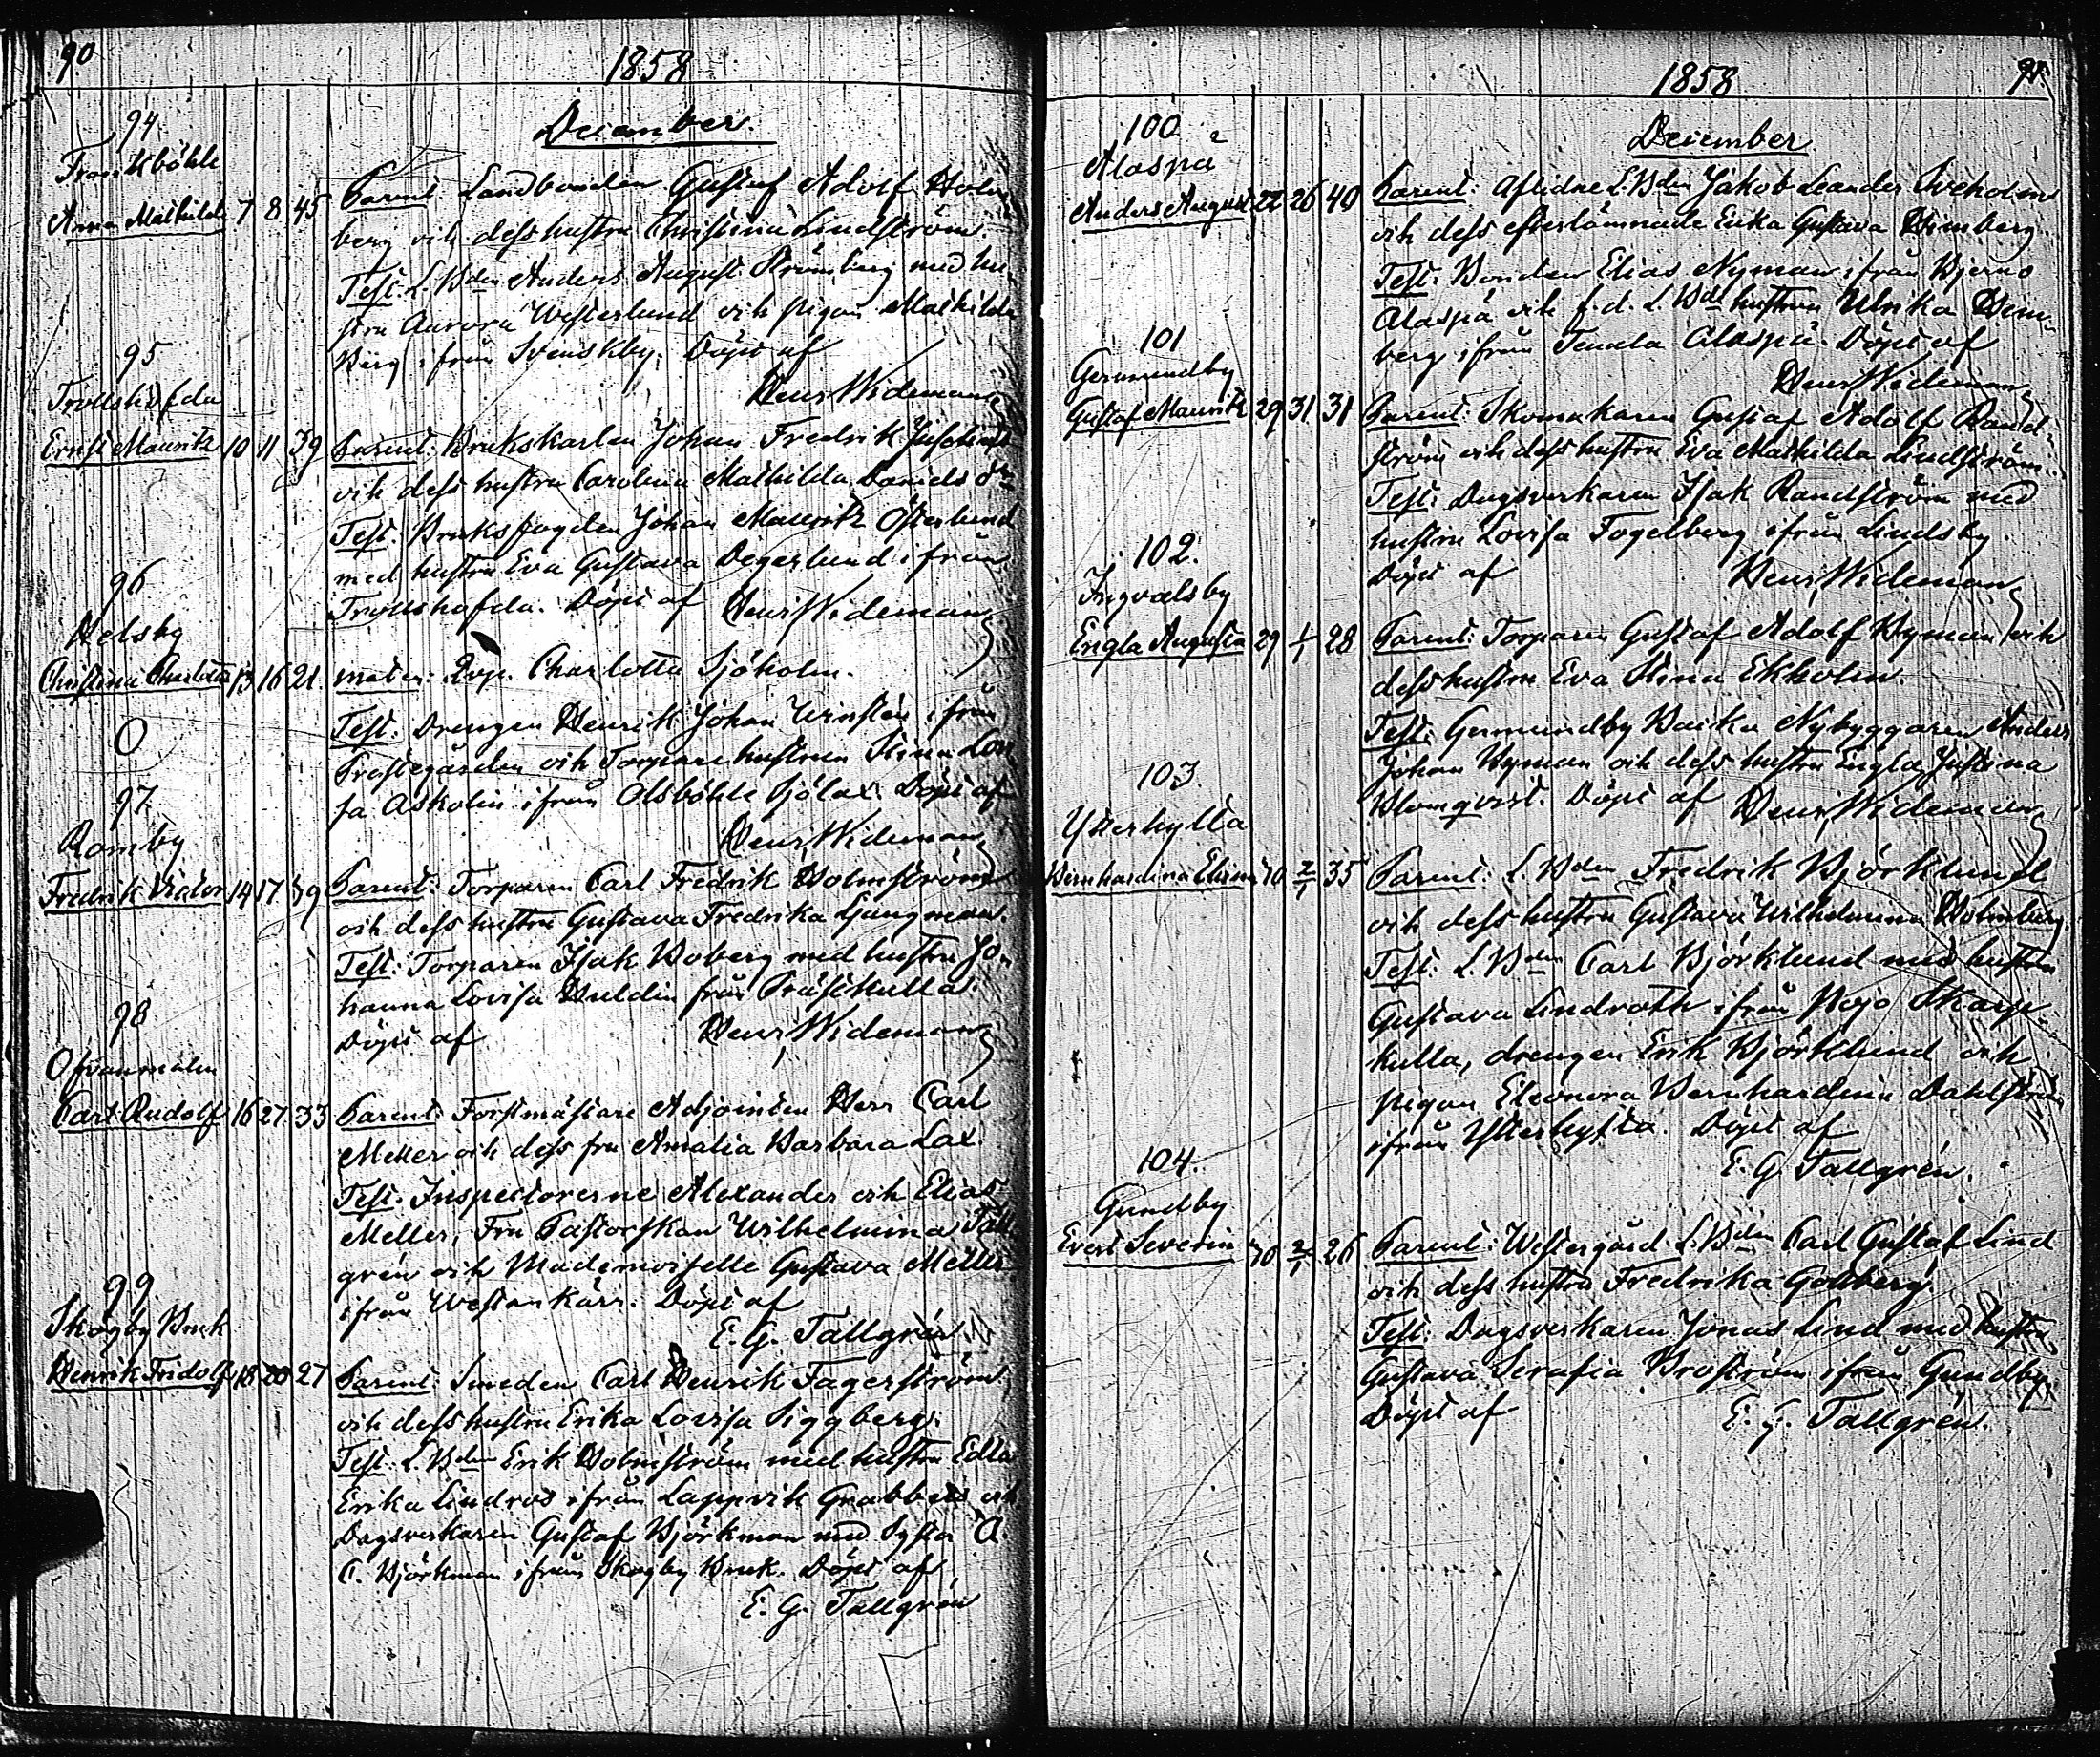 90
1858
December.
94
Franskböhle
Anna Mathilda 7 8 45
Parent: Landbonden Gustaf Adolf Holm-
berg och dess hustru Christina Lindström.
Test. L. Bden Anders August Strömberg med hu-
stru Aurora Westerlund och pigan Mathilda
Berg ifrån Svenskby. Döpt af
Henr. Wideman
95
Trollshöfda
Ernst Mauritz 10 11 39
Parent: Brukskarlen Johan Fredrik
och dess hustru Carolina Mathilda Daniels dr
Test. Bruksfogden Johan Mauritz Österlund
med hustru Eva Gustava Degerlund ifrån
Trollshofda. Döpt af Henr. Wideman
96
Helsby
Christina Charlotta 13 16 21
O
mater: Charlotta Sjöholm.
Test: Drengen Henrik Johan Winstén ifrån
Prestegården och Torpare hustrun Stina Lovi
sa Askolin ifrån Olsböhle Sjölax. Döpt af
Henr. Wideman
97
Romby
Fredrik Victor 14 17 39
Parent: Torparen Carl Fredrik Holmström
och dess hustru Gustava Fredrika Ljungman.
Test: Torparen Isak Boberg med hustru Jo-
hanna Lovisa Huldin från Prästkulla.
Döpt af Henr. Wideman
98
Ofvanmalm
Carl Rudolf 16 27 33
Parent: Forstmästare Adjointen Herr Carl
Meller och dess fru Amalia Barbara Lax.
Test. Inspectorerne Alexander och Elias
Meller, Fru Pastorskan Wilhelmina Tall
grén och Mademoiselle Gustava Meller
ifrån Westankärr. Döpt af
E. G. Tallgrén
99
Skogby Bruk
Henrik Fridolf 18 20 27
Parent: Smeden Carl Henrik Fagerström
och dess hustru Erika Lovisa Siggberg.
Test: L. Bden Erik Holmström med hustru Edla
Erika Lindros ifrån Lappvik Grabbers och
Dagsverkaren Gustaf Björkman med Syster A
C. Björkman ifrån Skogby Bruk. Döpt af
E. G. Tallgrén
1858
91
December
100
Alaspä
Anders August 22 26 40
Parent: Aflidne L. Bden Jakob Leander
och dess efterlämnade Enka Gustava Himberg
Test: Bonden Elias Nyman ifrån Bjerno
Alaspä och f. d. L. Bds hustrun Ulrika Him-
berg ifrån Tenala Alaspä. Döpt af
Henr. Wideman
101
Germundby
Gustaf Mauritz 29 31 31
Parent: Skomakaren Gustaf Adolf Rand-
ström och dess hustru Eva Mathilda Lindström.
Test: Dagsverkaren Isak Randström med
hustru Lovisa Fogelberg ifrån Lindsby
Döpt af Henr. Wideman
102.
Ingvalsby
Engla Augusta 29 1/1 28
Parent: Torparen Gustaf Adolf Nyman och
dess hustru Eva Stina Ekholm.
Test: Germundby Backa Nybyggaren Anders
Johan Nyman och dess hustru Engla Justina
Blomqvist. Döpt af Henr. Wideman
103.
Ytterkylla
Bernhardina Elisina 30 2/1 35
Parent: L. Bden Fredrik Björklund
och dess hustru Gustava Wilhelmina Holmberg.
Test: L. Bden Carl Björklund med hustru
Gustava Lindroth ifrån Pojo Skarp-
kulla, drengen Erik Björklund och
pigan Eleonora Bernhardina Dahlström
ifrån Ytterkylla. Döpt af
E. G. Tallgrén.
104.
Gundby
Evert Severin 30 2/1 26
Parent: Westergård L. Bden Carl Gustaf Lind
och dess hustru Fredrika Gottberg.
Test: Dagsverkaren Jonas Lind med hustru
Gustava Serafia Broström ifrån Gundby.
Döpt af E. G. Tallgrén.